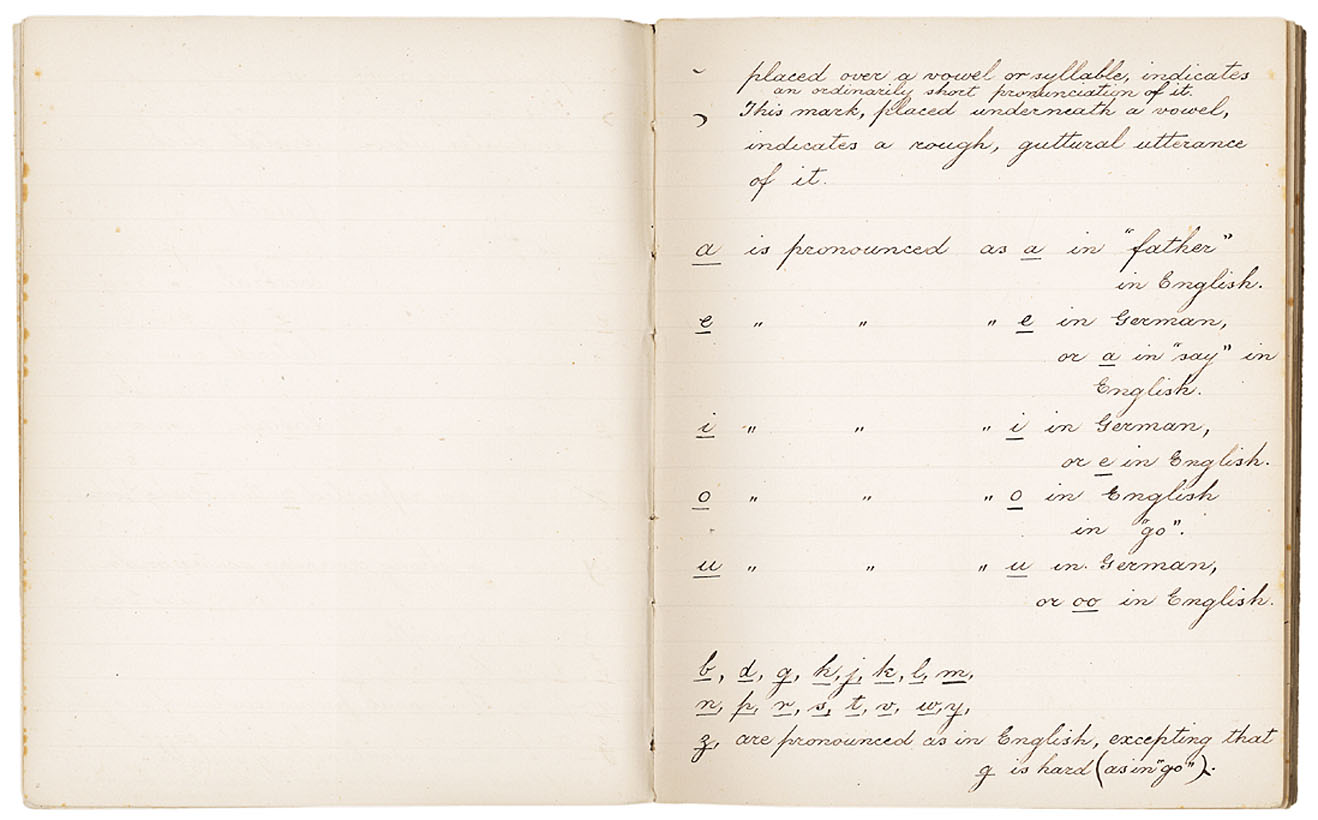 ˘ placed over a vowel or syllable, indicates
an ordinarily short pronunciation of it.
This mark, placed underneath a vowel,
indicates a rough, guttural utterance
of it.
a is pronounced as a in "father"
in English.
e " " " e in German,
or a in "say" in
English.
i " " " i in German,
or e in English.
o " " " o in English
in "go".
u " " " u in German,
or oo in English.
b, d, g, h, j, k, l, m,
n, p, r, s, t, v, w, y,
z, are pronounced as in English, excepting that
g is hard (as in "go").